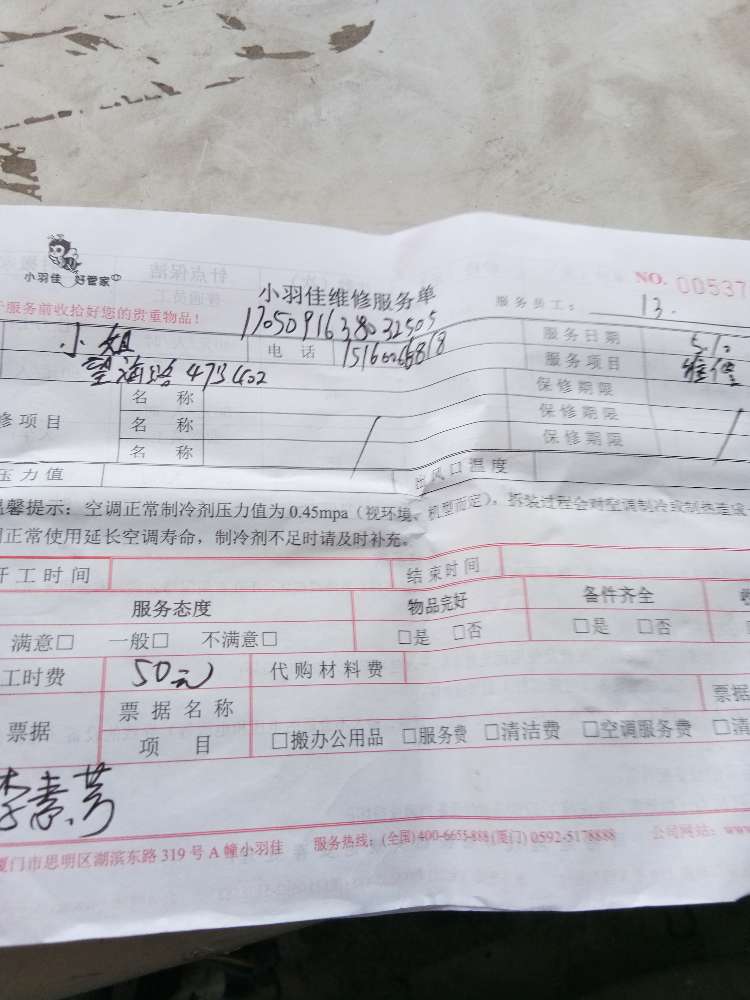 小羽佳 好管家
小羽佳维修服务单
NO. 00537
服务员工： 13.
服务前收拾好您的贵重物品！
1705091638032505
小姐
电 话
服务日期 5.12
望海路 473 402
服务项目 维修
名 称
保修期限
修项目
名 称
保修期限
名 称
保修期限
压力值
出风口温度
温馨提示：空调正常制冷剂压力值为0.45mpa（视环境、机型而定），拆装过程会对空调制冷或制热连
正常使用延长空调寿命，制冷剂不足时请及时补充。
开工时间
结束时间
服务态度
物品完好
备件齐全
满意□ 一般□ 不满意□
□是 □否
□是 □否
工时费 50元 代购材料费
票据
票据名称
票据
项 目
□搬办公用品 □服务费 □清洁费 □空调服务费 □清
李惠芳
厦门市思明区湖滨东路 319 号 A 幢小羽佳
服务热线：(全国)400-6655-888 (厦门) 0592-5178888
公司网站：www